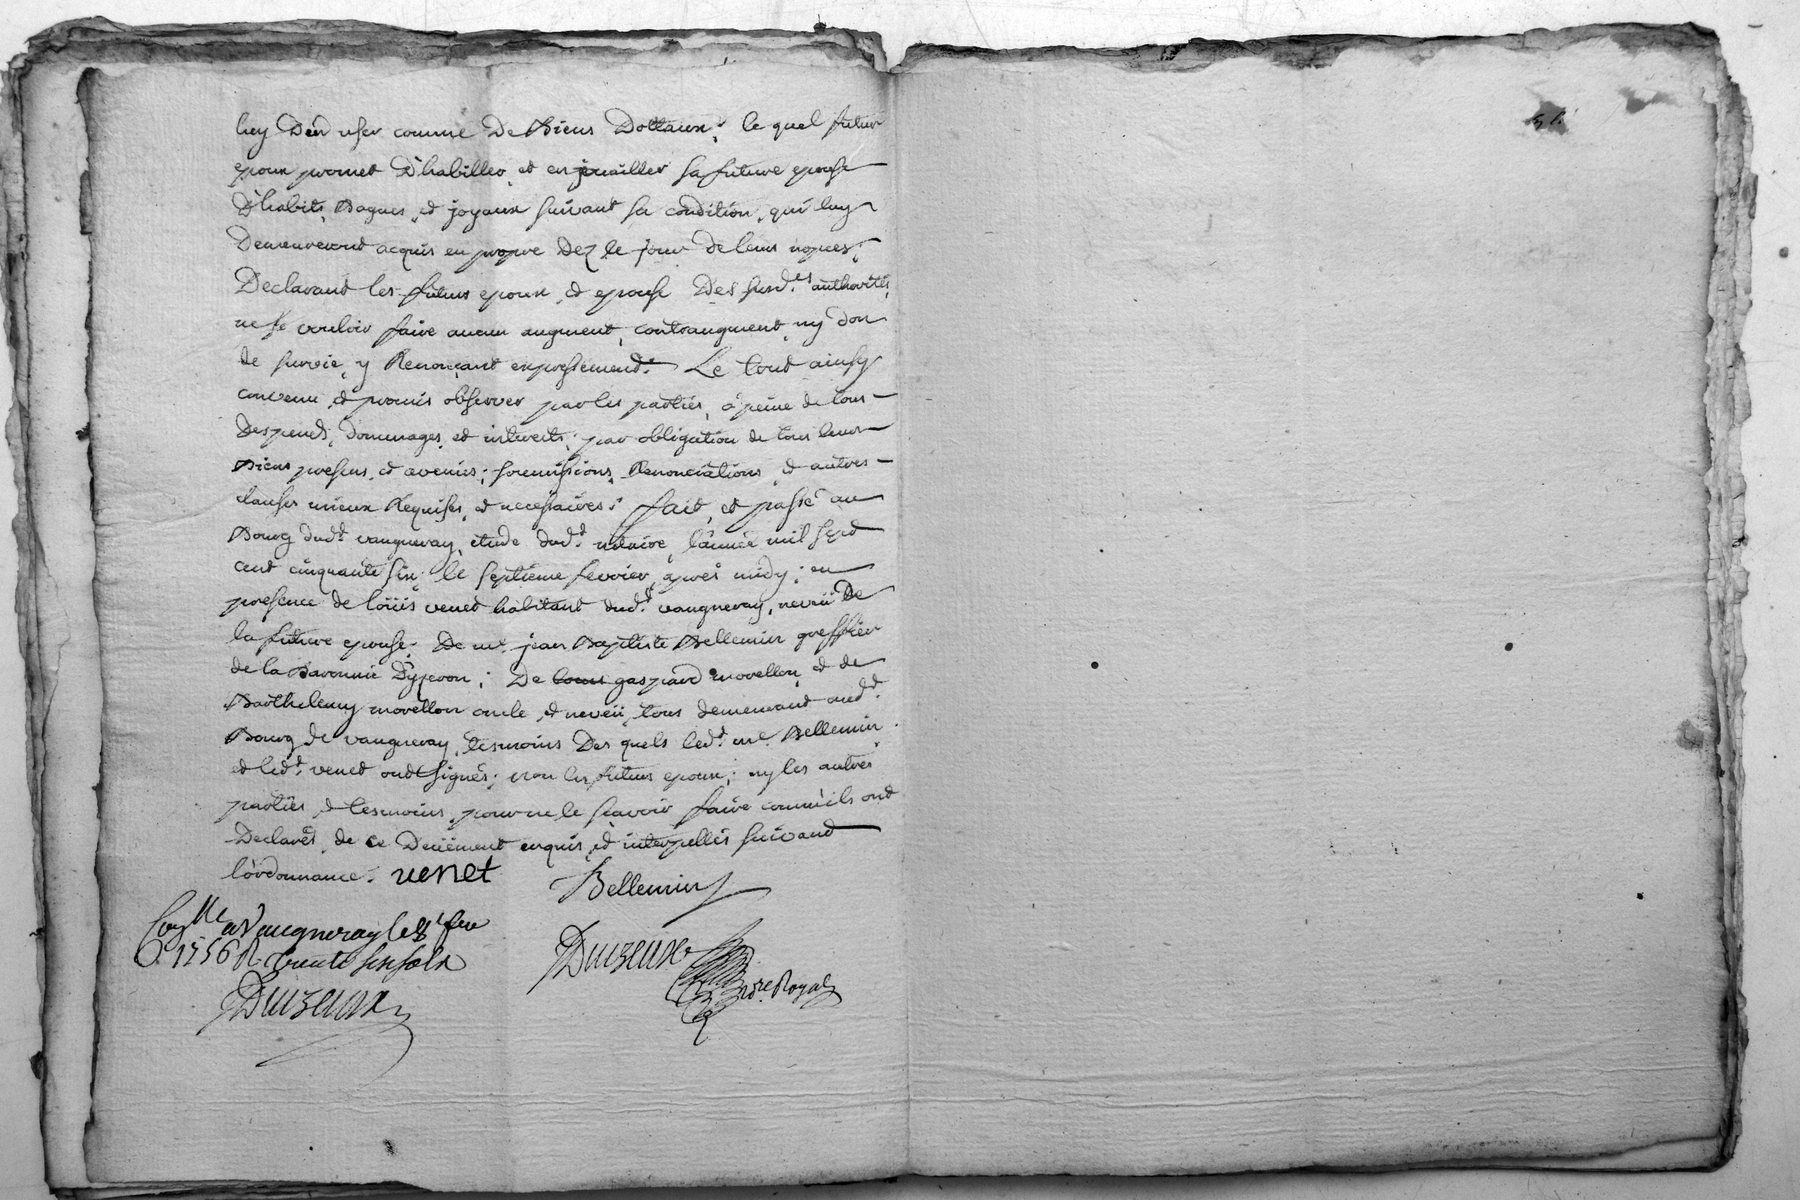 luy d'en user comme de Biens Dottaux; le quel futur
epoux promet D'habiller, et enjouailler sa future epouse
D'habits, Bagues, et joyaux suivant sa condition, qui luy
Demeureront acquis en propre dez le jour de leurs nopces;
Declarant les futurs epoux, et epouse Des susd.es authorités,
ne se vouloir faire aucun augment, contraugment, ny don
de survie, y Renonçant expressement: Le tout ainsy
convenu, et promis observer par les parties, à peine de tous
Despends, dommages, et interests; par obligation de tous leurs
Biens presens, et avenirs; soumissions, Renonciations, et autres
clauses mieux Requises, et necessaires: fait, et passé au
Bourg dud.t vaugneray, etude dud.t notaire, l'année mil sept
cent cinquante six; le septieme fevrier, apres midy; en
presence de loüis venet habitant dud.t vaugneray, neveü De
la future epouse; De m.e jean Baptiste Bellemin greffier
de la Baronnie D'yzeron; De gaspard morellon, et de
Barthelemy morellon oncle, et neveü, tous demeurant aud.t
Bourg de vaugneray, tesmoins Des quels led.t m.e Bellemin,
et led.t venet ont signés; non les futurs epoux; ny les autres
parties, et tesmoins, pour ne le sçavoir faire comm'ils ont
Declarés, de ce Deüement enquis, et interpellés suivant
l'ordonnance. venet
Bellemin
Con.lle a Vaugneray le 8.e fev
1756 R. trente six sols
Duizeux
Duizeux
no.re Royal